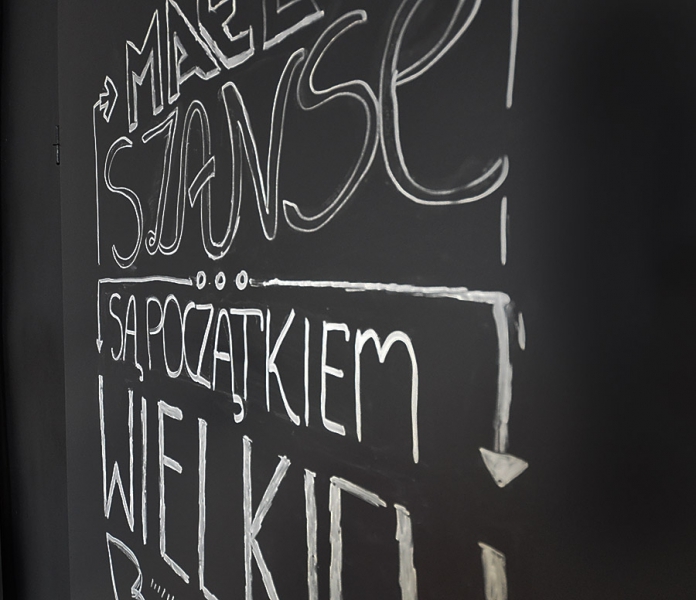 MAŁE
SZANSE
SĄ POCZĄTKIEM
WIELKICH